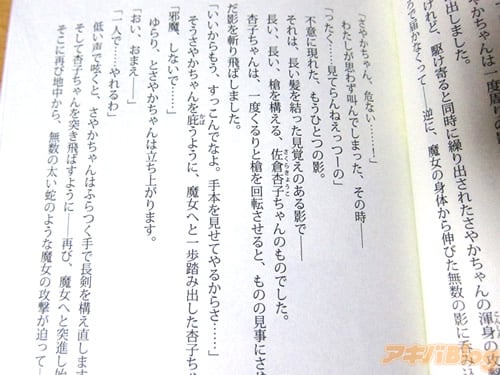 さやかちゃんは
一度周りの
出しました。
けれど、駆け寄ると同時に繰り出されたさやかちゃんの渾身の攻撃
ら声かなくって――逆に、魔女の身体から伸びた無数の影に呑み込
「さやかちゃん、危ない……！」
わたしが思わず叫んでしまった、その時――
「ったく……見てらんねえっつーの」
不意に現れた、もうひとつの影。
それは、長い髪を結った見覚えのある影で――
長い、長い、槍を構える、佐倉杏子ちゃんのものでした。
さくらきょうこ
杏子ちゃんは、一度くるりと槍を回転させると、ものの見事にさ
だ影を斬り飛ばしました。
「いいからもう、すっこんでなよ。手本を見せてやるからさ……」
そうさやかちゃんを庇うように、魔女へと一歩踏み出した杏子ちゃん
かば
「邪魔、しないで……」
ゆらり、とさやかちゃんは立ち上がります。
「おい、おまえ――」
「一人で……やれるわ」
低い声で呟くと、さやかちゃんはふらつく手で長剣を構え直します
そして杏子ちゃんを突き飛ばすように――再び、魔女へと突進し始
そこに再び地中から、無数の太い蛇のような魔女の攻撃が迫って――
アキバBlog